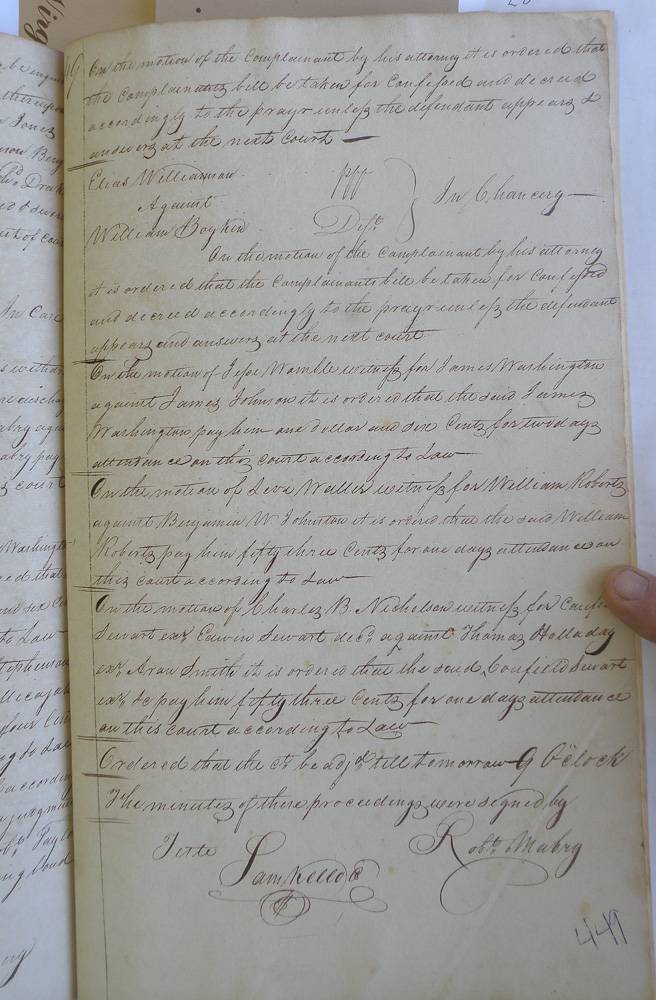 On the motion of the complainant by his attorney it is ordered that
the complainants bill be taken for confessed and decreed
accordingly to the prayr unless the defendant appears &
answers at the next court
Elias Williamson plff
Against In Chancery
William Boykin Deft
On the motion of the complainant by his attorney
it is ordered that the complainants bill be taken for confessed
and decreed accordingly to the prayr unless the defendant
appears and answers at the next court
On the motion of Jesse Womble witness for James Washington
against James Johnson it is ordered that the said James
Washington pay him one dollar and six Cents for two days
attendance on this court according to Law
On the motion of Levi Waller witness for William Roberts
against Benjamin W Johnston it is ordered that the said William
Roberts pay him fifty three Cents for one days attendance on
this court according to Law
On the motion of Charles B. Nicholson witness for
Sewart exr Edwin Sewart decd against Thomas Holladay
exr Aran Smith it is ordered that the said Confield Sewart
exr &c pay him fifty three Cents for one days attendance
on this court according to Law
Ordered that the ct be adjd till tomorrow 9 OClock
The minutes of these proceedings were signed by
Teste Robt. Mabry
Sam Kello
449